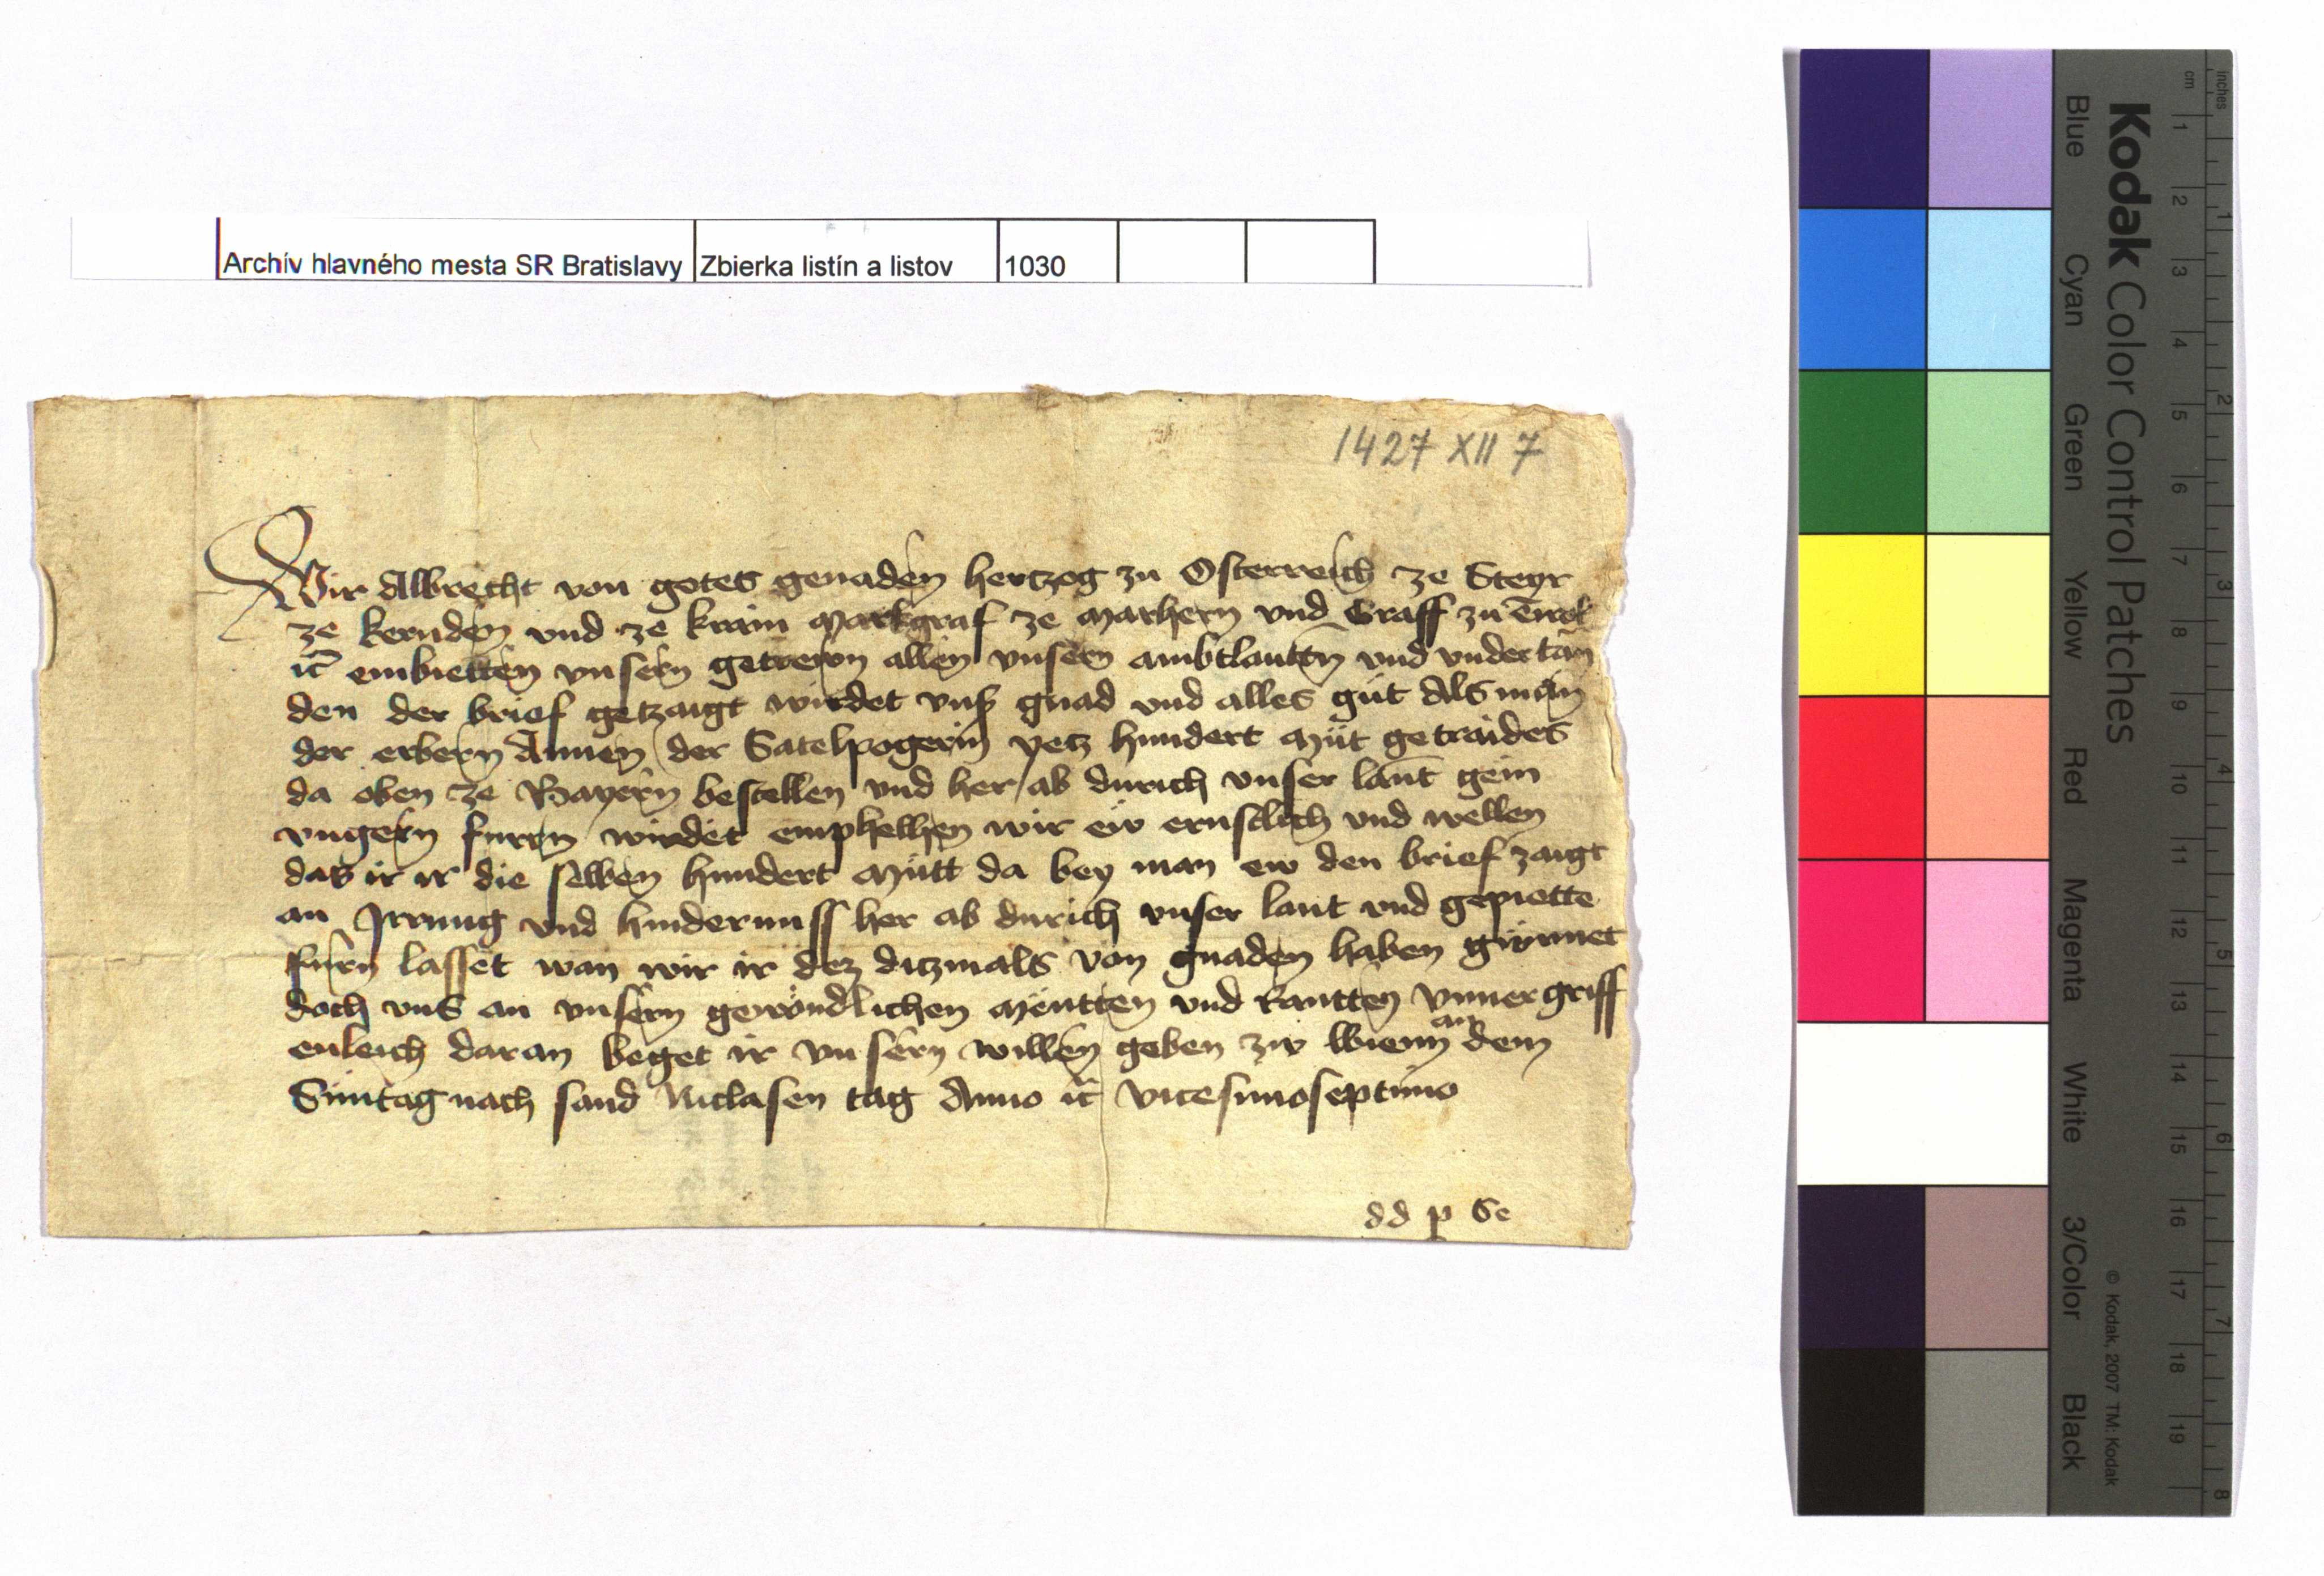 Archív hlavného mesta SR Bratislavy Zbierka listín a listov 1030
1427 XII 7
Wir Albrecht von gotes genaden hertzog zu Osterreich ze Steyr
ze kernden vnd ze krain Markgraf ze Marhern vnd Graff zu Tirol
etc embietten vnsern getrewn allen vnsern ambtlautten vnd vndertan
den der brief getzaigt wirdet vnser gnad vnd alles gut Als man
der erbern Annen der Satelpogerin yetz hundert Mut getraides
da oben ze Bayern bestellen vnd her ab durich vnser lant gein
vngern furen wirdet emphelhen wir ew ernstlich vnd wellen
das ir ir die selben hundert Mutt da bey man ew den brief zaigt
an Irrung vnd hindernuss her ab durich vnser lant vnd gepiette
furn lasset wan wir ir dez diczmals von gnaden haben gunnet
doch vns an vnsern gewondlichen Meutten vnd Rautten vnuergriff
enleich daran beget ir vnsern willen geben zw Wienn an dem
Suntag nach sand Niclasen tag Anno etc vicesimoseptimo
dd p Se
Kodak Color Control Patches
Blue Cyan Green Yellow Red Magenta White 3/Color Black
© Kodak, 2007 TM: Kodak
cm 1 2 3 4 5 6 7 8 9 10 11 12 13 14 15 16 17 18 19
inches 1 2 3 4 5 6 7 8